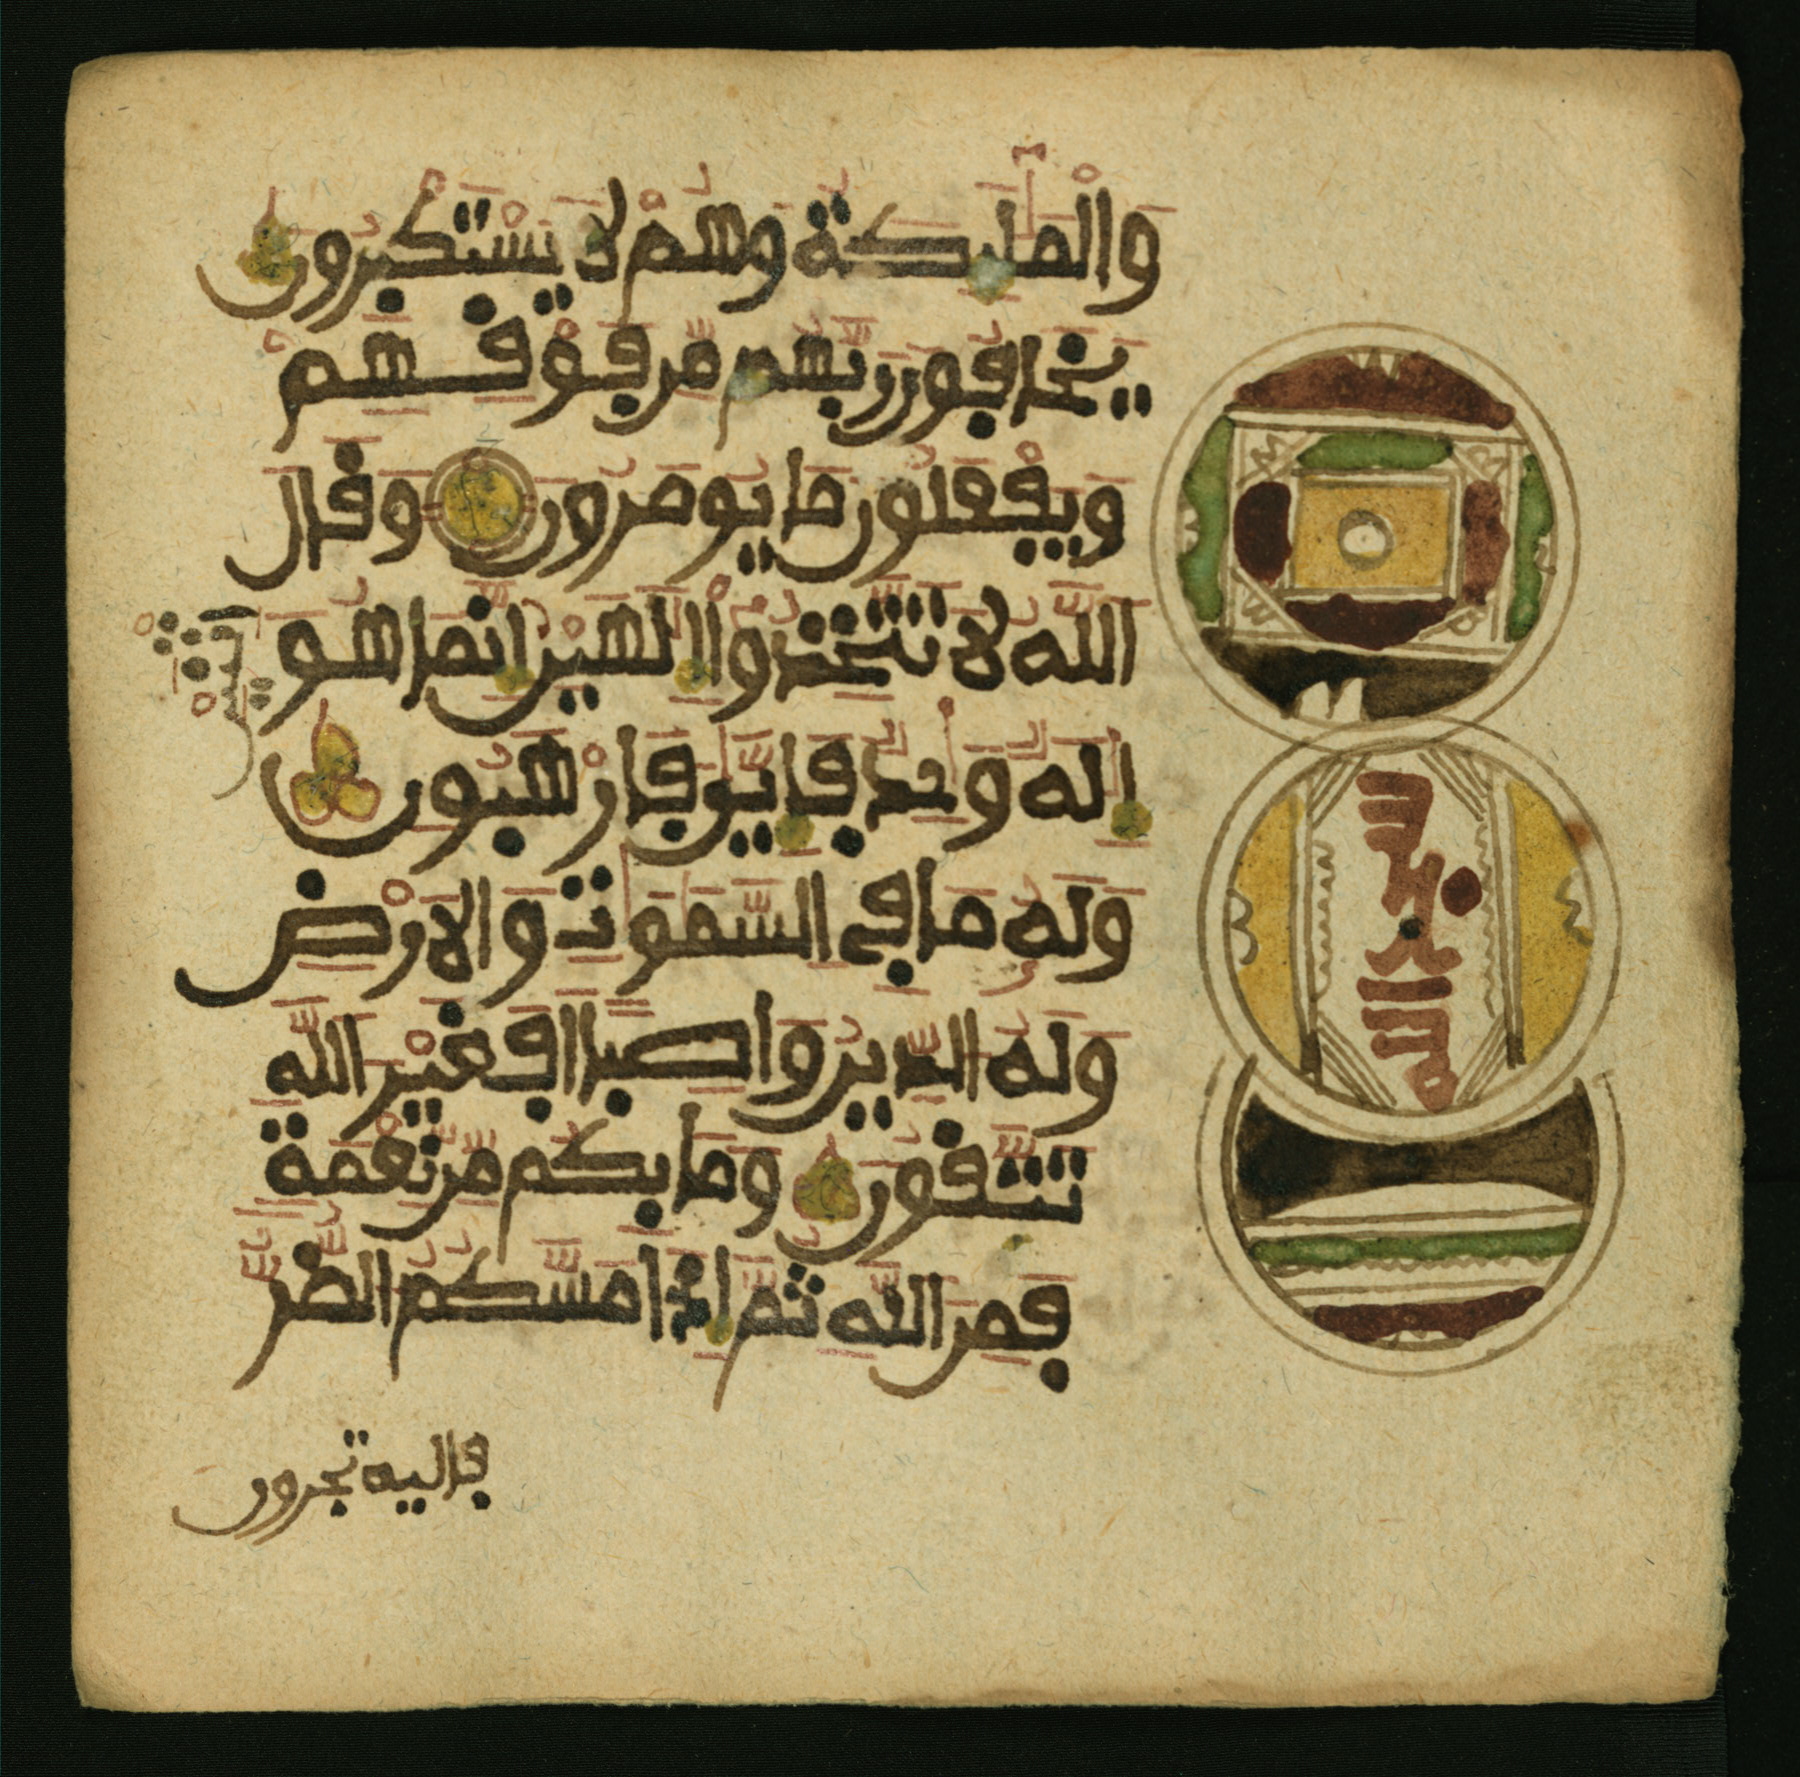 والمليكة وهم لا يستكبرون
يخافون ربهم من فوقهم
ويفعلون ما يومرون وقال
الله لا تتخذوا الهين انما هو
اثنين
اله وحد فايي فارهبون
وله ما في السموت والارض
وله الدين واصبا افغير الله
تتقون وما بكم من نعمة
فمن الله ثم اذا مسكم الضر
فاليه تجرون